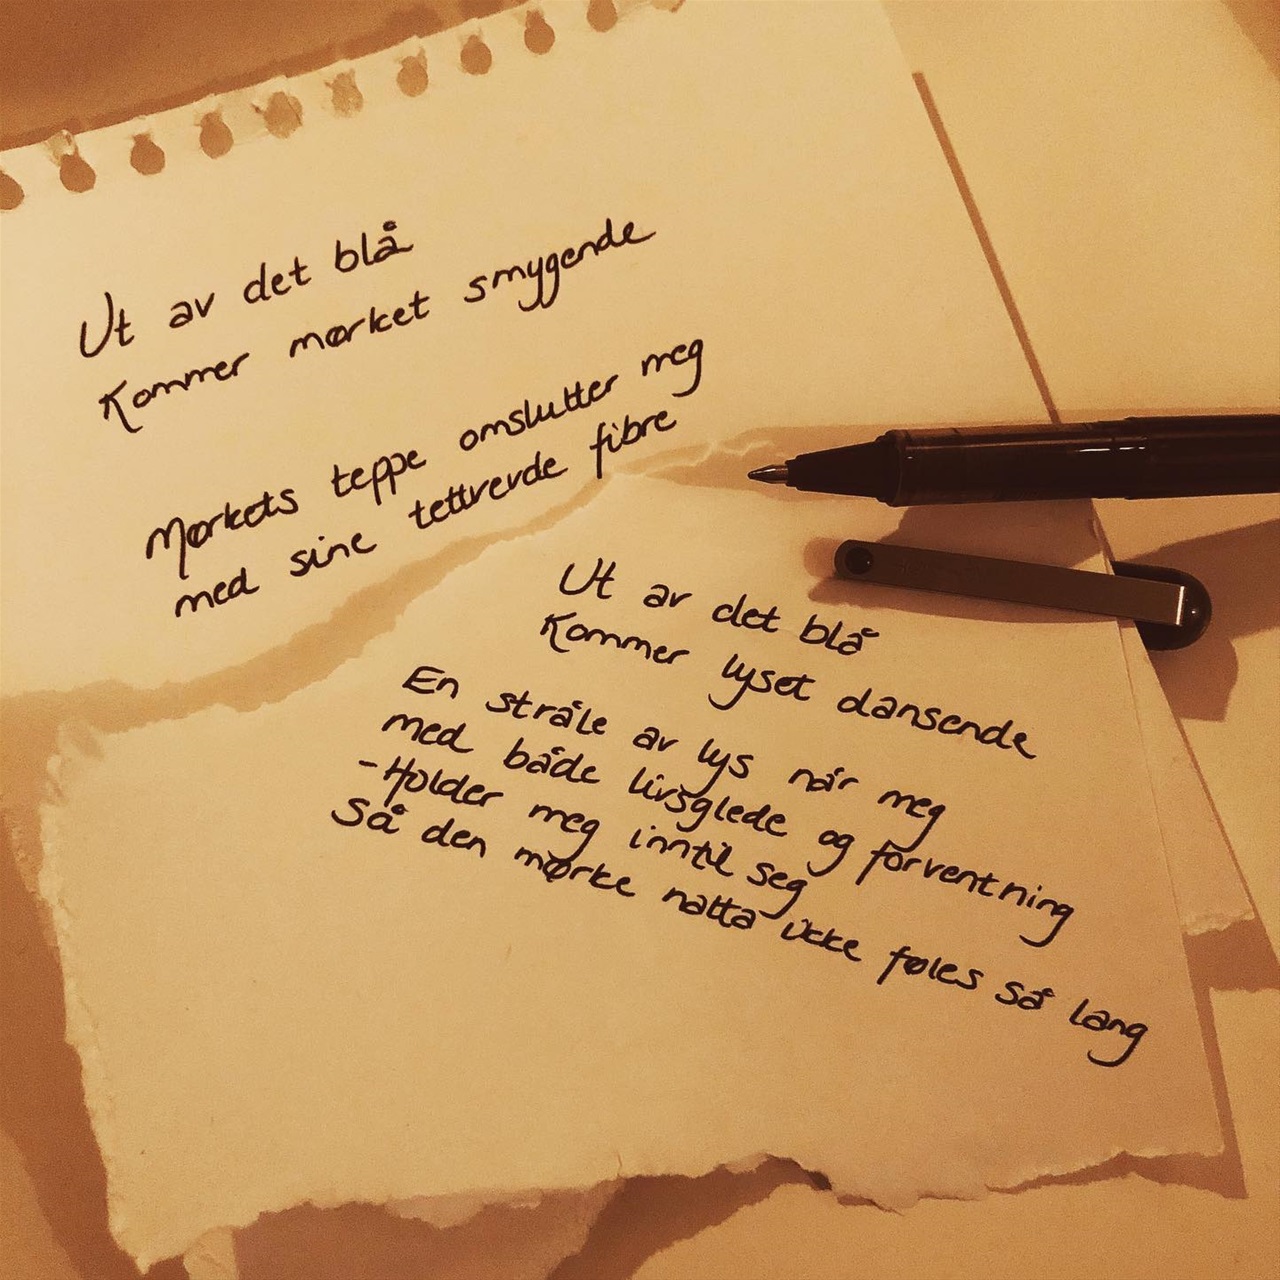 Ut av det blå
Kommer mørket smygende
Mørkets teppe omslutter meg
med sine tettvevde fibre
Ut av det blå
Kommer lyset dansende
En stråle av lys når meg
med både livsglede og forventning
-Holder meg inntil seg
Så den mørke natta ikke føles så lang